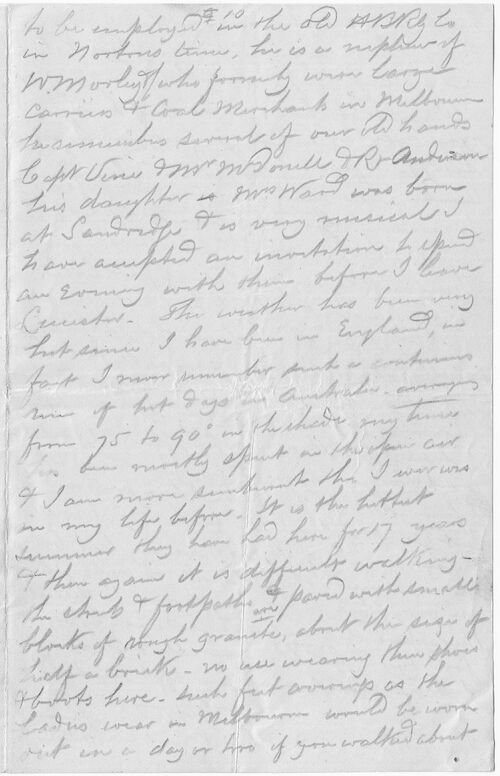 to be employed in the old HBRly Co
in Nortons time, he is a nephew of
W. Morley who formerly were large
carriers & Coal Merchants in Melbourne
he remembers several of our old hands
Capt Vine & Mr McDonell & Rt Anderson
his daughter Mrs Ward was born
at Sandridge & is very musical I
have accepted an invitation to spend
an Evening with them before I leave
Leicester - The weather has been very
hot since I have been in England, in
fact I never remember such a continuous
run of hot days in Australia - averages
from 75 to 90° in the shade my time
has been mostly spent in the open air
& I am more sunburnt than I ever was
in my life before - It is the hottest
summer they have had here for 17 years
& then again it is difficult walking -
the streets & footpaths are paved with small
blocks of rough granite, about the size of
half a brick - no use wearing thin shoes
& boots here - such feet coverings as the
ladies wear in Melbourne would be worn
out in a day or two if you walked about